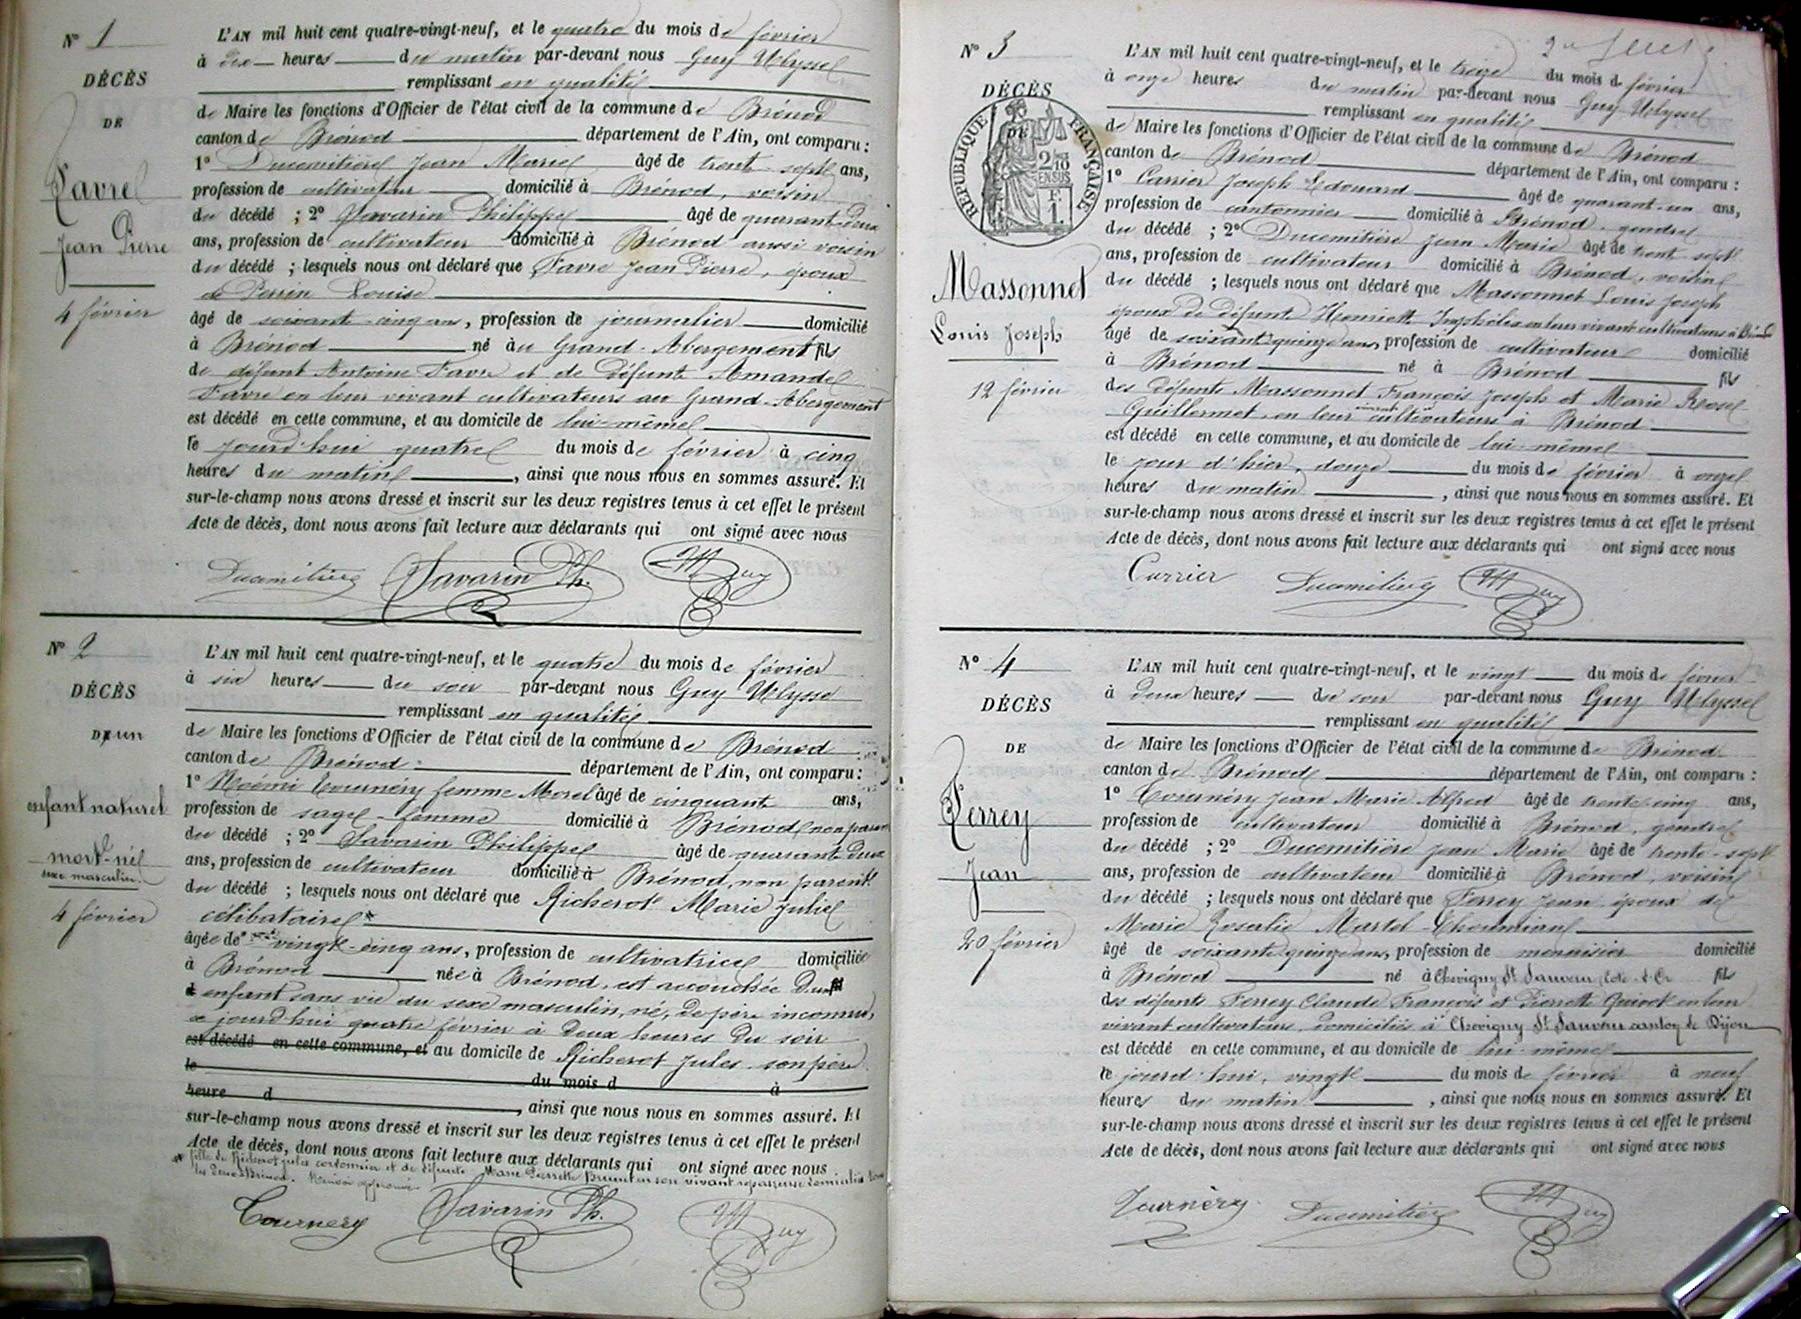 N° 1
DÉCÈS
DE
Favre
Jean Pierre
4 février
L'AN mil huit cent quatre-vingt-neuf, et le quatre du mois de février
à dix heures du matin par-devant nous Guy Ulysse
remplissant en qualité
de Maire les fonctions d'Officier de l'état civil de la commune de Brénod
canton de Brénod département de l'Ain, ont comparu :
1° Ducimitière Jean Marie âgé de trent-sept ans,
profession de cultivateur domicilié à Brénod, voisin
du décédé ; 2° Savarin Philippe âgé de quarant-deux
ans, profession de cultivateur domicilié à Brénod aussi voisin
du décédé ; lesquels nous ont déclaré que Favre Jean Pierre, époux
de Perrin Louise
âgé de soixant-cinq ans, profession de journalier domicilié
à Brénod né au Grand-Abergement fils
de défunt Antoine Favre et de défunte Amande
Favre en leur vivant cultivateurs au Grand-Abergement
est décédé en cette commune, et au domicile de lui-même
le jourd'hui quatre du mois de février à cinq
heures du matin, ainsi que nous nous en sommes assuré. Et
sur-le-champ nous avons dressé et inscrit sur les deux registres tenus à cet effet le présent
Acte de décès, dont nous avons fait lecture aux déclarants qui ont signé avec nous
Ducimitière Savarin Ph. Guy
N° 2
DÉCÈS
D'un
enfant naturel
mort-né
sexe masculin
4 février
L'AN mil huit cent quatre-vingt-neuf, et le quatre du mois de février
à six heures du soir par-devant nous Guy Ulysse
remplissant en qualité
de Maire les fonctions d'Officier de l'état civil de la commune de Brénod
canton de Brénod département de l'Ain, ont comparu :
1° Noémi Tournéry femme Morel âgé de cinquant ans,
profession de sage-femme domicilié à Brénod, non parent
du décédé ; 2° Savarin Philippe âgé de quarant-deux
ans, profession de cultivateur domicilié à Brénod, non parent
du décédé ; lesquels nous ont déclaré que Richerot Marie Julie
célibataire*
âgée de vingt-cinq ans, profession de cultivatrice domiciliée
à Brénod née à Brénod, est accouchée d'un
enfant sans vie du sexe masculin, né, de père inconnu,
ce jourd'hui quatre février à deux heures du soir
est décédé en cette commune, et au domicile de Richerot Jules son père
le du mois d à
heure d , ainsi que nous nous en sommes assuré. Et
sur-le-champ nous avons dressé et inscrit sur les deux registres tenus à cet effet le présent
Acte de décès, dont nous avons fait lecture aux déclarants qui ont signé avec nous
* fille de Richerot Jules cordonnier et de défunte Marie Pierrette Brunet en son vivant repasseuse domiciliés tous
les deux à Brénod. Renvoi approuvé
Tournery Savarin Ph. Guy
N° 3
DÉCÈS
DE
RÉPUBLIQUE FRANÇAISE
2/10 EN SUS
F. 1.
Massonnet
Louis Joseph
12 février
L'AN mil huit cent quatre-vingt-neuf, et le treize du mois de février
à onze heures du matin par-devant nous Guy Ulysse
remplissant en qualité
de Maire les fonctions d'Officier de l'état civil de la commune de Brénod
canton de Brénod département de l'Ain, ont comparu :
1° Carrier Joseph Edouard âgé de quarant-un ans,
profession de cantonnier domicilié à Brénod, gendre
du décédé ; 2° Ducimitière Jean Marie âgé de trent sept
ans, profession de cultivateur domicilié à Brénod, voisin
du décédé ; lesquels nous ont déclaré que Massonnet Louis Joseph
époux de défunte Henriette en leur vivant cultivateurs à Brénod
âgé de soixant quinze ans, profession de cultivateur domicilié
à Brénod né à Brénod fils
des défunts Massonnet François Joseph et Marie Rose
Guillermet en leur vivant cultivateurs à Brénod
est décédé en cette commune, et au domicile de lui-même
le jour d'hier, douze du mois de février à onze
heures du matin, ainsi que nous nous en sommes assuré. Et
sur-le-champ nous avons dressé et inscrit sur les deux registres tenus à cet effet le présent
Acte de décès, dont nous avons fait lecture aux déclarants qui ont signé avec nous
Carrier Ducimitière Guy
N° 4
DÉCÈS
DE
Ferrey
Jean
20 février
L'AN mil huit cent quatre-vingt-neuf, et le vingt du mois de février
à deux heures du soir par-devant nous Guy Ulysse
remplissant en qualité
de Maire les fonctions d'Officier de l'état civil de la commune de Brénod
canton de Brénod département de l'Ain, ont comparu :
1° Tournéry Jean Marie Alfred âgé de trente cinq ans,
profession de cultivateur domicilié à Brénod, gendre
du décédé ; 2° Ducimitière Jean Marie âgé de trente-sept
ans, profession de cultivateur domicilié à Brénod, voisin
du décédé ; lesquels nous ont déclaré que Ferrey Jean époux de
Marie Rosalie Martel
âgé de soixant quinze ans, profession de menuisier domicilié
à Brénod né à Chevigny St Sauveur, Côte-d'Or fils
des défunts Ferrey Claude François et Pierrette en leur
vivant cultivateurs domiciliés à Chevigny St Sauveur canton de Dijon
est décédé en cette commune, et au domicile de lui-même
le jourd'hui, vingt du mois de février à neuf
heures du matin, ainsi que nous nous en sommes assuré. Et
sur-le-champ nous avons dressé et inscrit sur les deux registres tenus à cet effet le présent
Acte de décès, dont nous avons fait lecture aux déclarants qui ont signé avec nous
Tournéry Ducimitière Guy